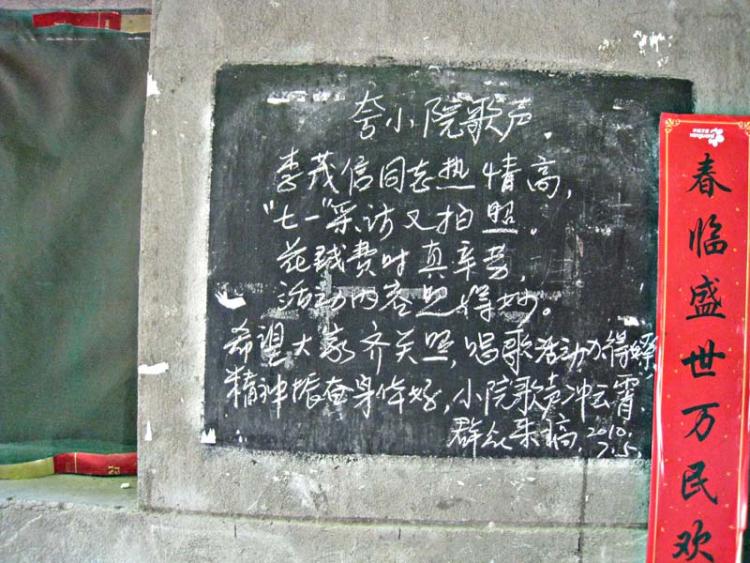 夸小院歌声.
李茂信同志热情高,
"七一"采访又拍照.
花钱费时真辛劳,
活动内容照得妙。
希望大家齐关照,唱歌活动办得
精神振奋身体好,小院歌声冲云霄.
群众来稿.2010.
7.5.
春临盛世万民欢